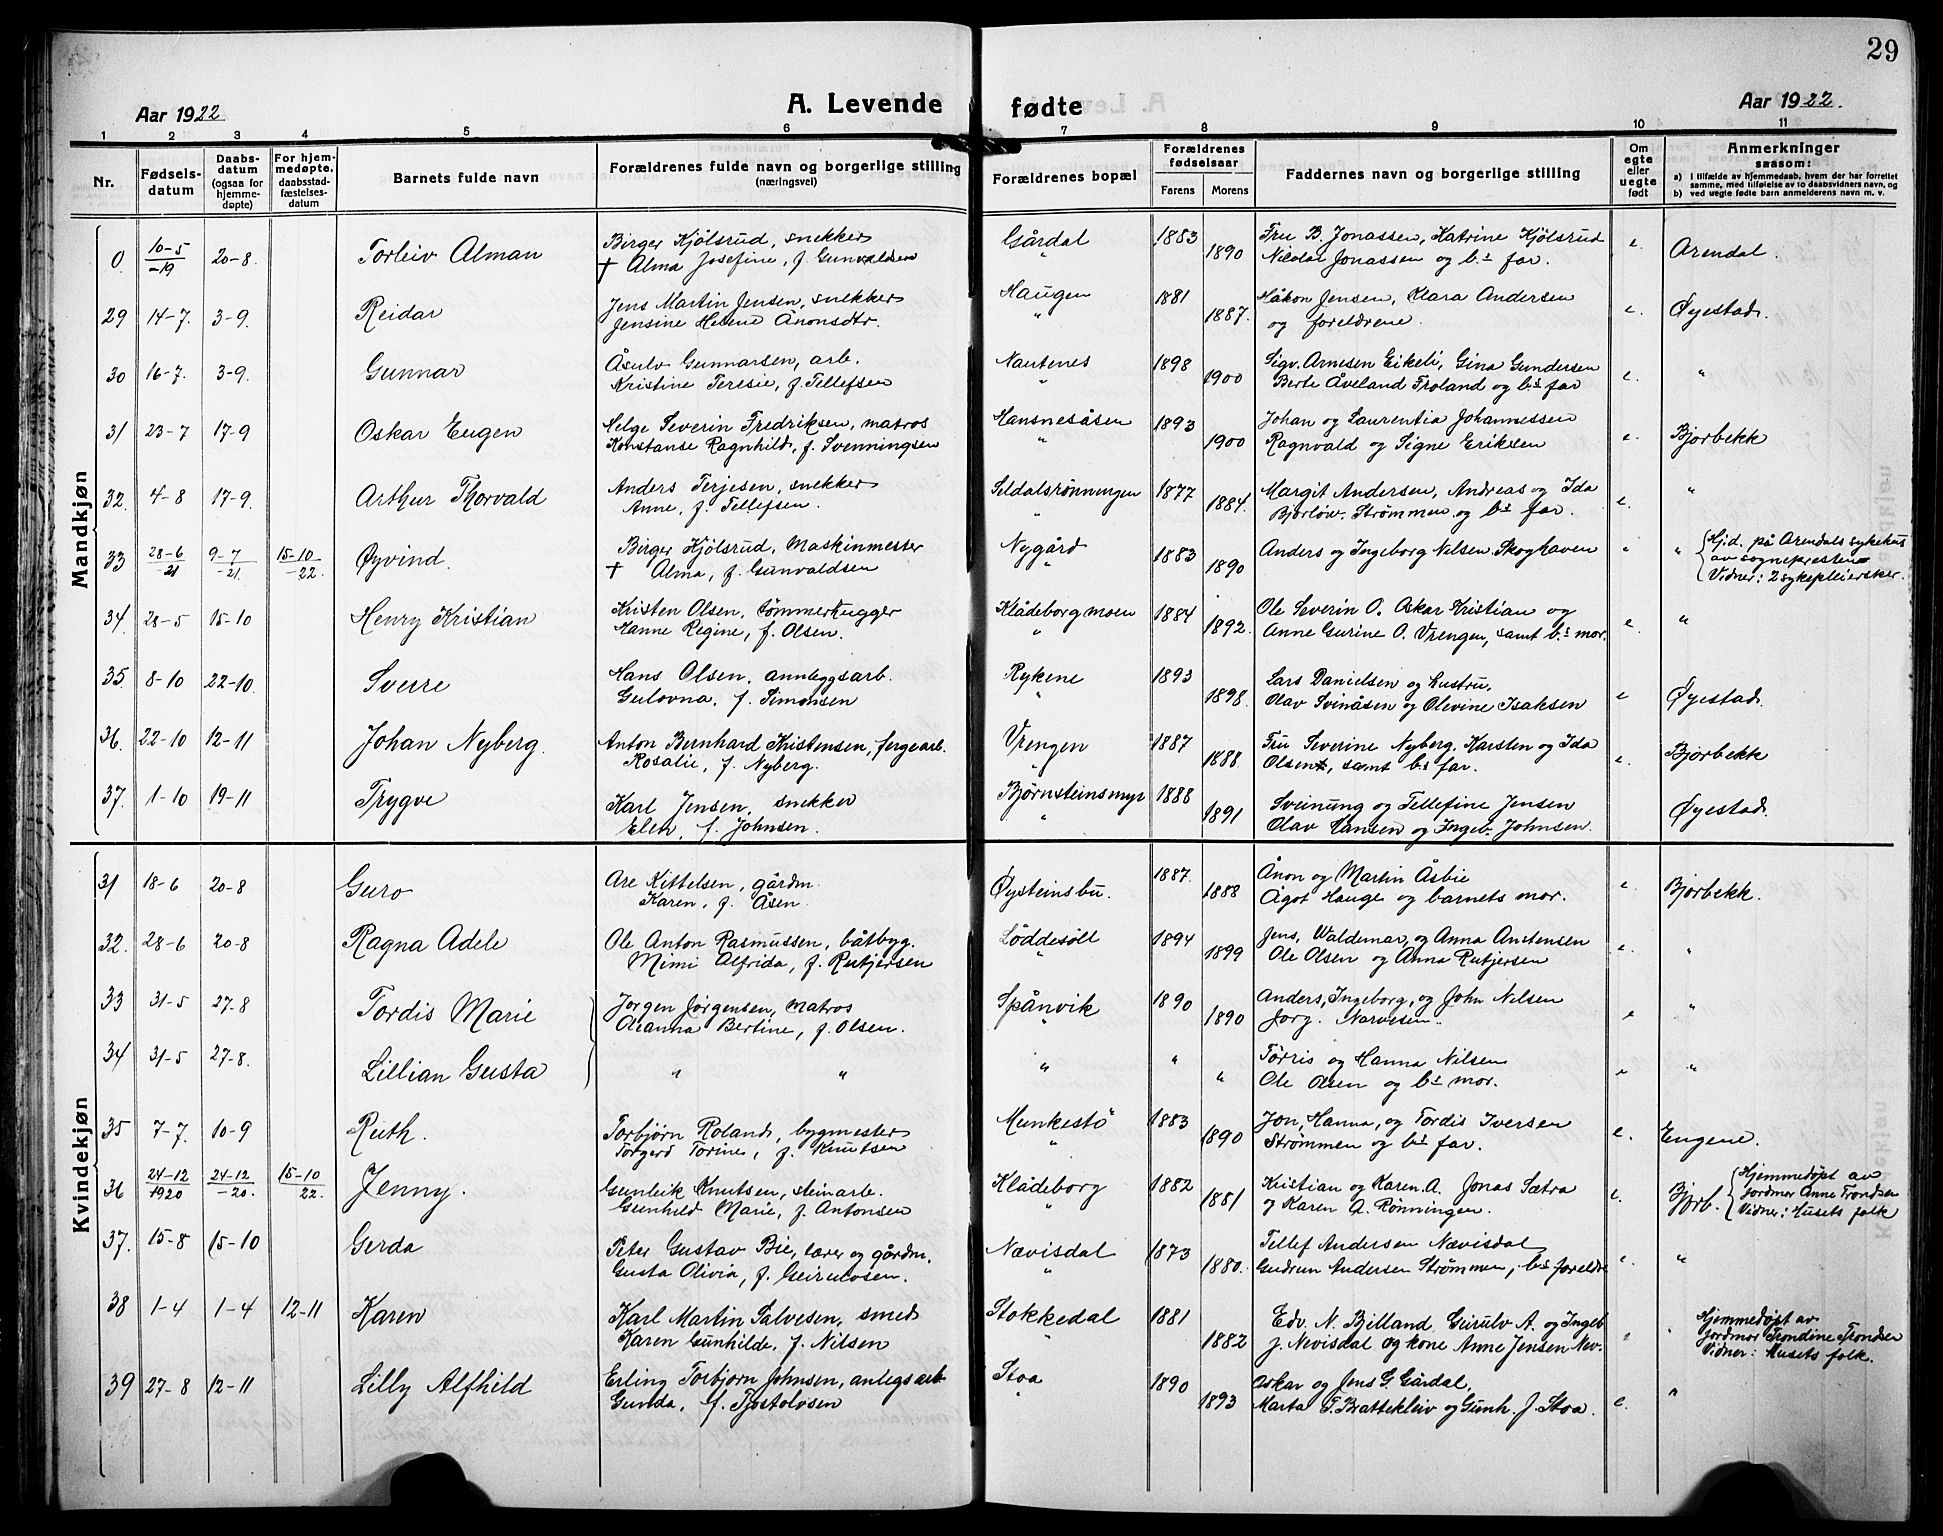 29
Aar 1922
A. Levende fødte
Aar 1922.
1 2 3 4 5 6 7 8 9 10 11
Nr. Fødsels-datum Daabs-datum (ogsaa for hjemme-døpte) For hjem-medøpte, daabsstad-fæstelses-datum Barnets fulde navn Forældrenes fulde navn og borgerlige stilling (næringsvei) Forældrenes bopæl Forældrenes fødselsaar Farens Morens Faddernes navn og borgerlige stilling Om egte eller uegte født Anmerkninger saasom: a) I tilfælde av hjemmedaab, hvem der har forrettet samme, med tilføielse av to daabsvidners navn, og b) ved uegte fødte barn anmelderens navn m. v.
Mandkjøn
0 10-5 -19 20-8. Torleiv Alman Birger Kjølsrud, snekker Gårdal 1883 Fru B. Jonassen, Katrine Kjølsrud e. Arendal.
† Alma Josefine, f. Gunvaldsen " 1890 Nikolai Jonassen og b.s far.
29 14-7. 3-9. Reidar Jens Martin Jensen, snekker Haugen 1881 Håkon Jensen, Klara Andersen e. Øyestad.
Jensine Helene Ånonsdtr. " 1887. og foreldrene.
30 16-7. 3-9. Gunnar Åsulv Gunnarsen, arb. Nautenes 1898 Sigv. Arnesen Eikeli, Gina Gundersen e. "
Kristine Teresie, f. Tellefsen " 1900 Berte Åveland Froland og b.s far
31 23-7 17-9 Oskar Eugen Helge Severin Fredriksen, matros Hansnesåsen 1893 Johan og Laurentia Johannessen e. Bjorbekk
Konstanse Ragnhild, f. Svenningsen " 1900 Ragnvald og Signe Eriksen
32. 4-8 17-9. Arthur Thorvald Anders Terjesen, snekker Seldalsrønningen 1877 Margit Andersen, Andreas og Ida e. "
Anne, f. Tellefsen. " 1884. Bjorløw. Strømmen og b.s far.
33 28-6 -21 9-7 -21. 15-10 -22. Øyvind. Birger Kjølsrud, Maskinmester Nygård 1883 Anders og Ingeborg Nilsen Skoghaven " " Hjd. på Arendals sykehus
† Alma, f. Gunvaldsen " 1890 av sognepresten
Vidner: 2 sykepleiersker.
34. 28-5 15-10 Henry Kristian Kristen Olsen, tømmerhugger Klådeborgmoen 1884 Ole Severin O. Oskar Kristian og e. "
Hanne Regine, f. Olsen. " 1892. Anne Gurine O. Vrengen, samt b.s mor.
35. 8-10 22-10. Sverre Hans Olsen, annleggsarb. Rykene 1893 Lars Danielsen og hustru, e Øyestad.
Gulovna, f. Simonsen " 1898. Olav Svinåsen og Olevine Isaksen
36. 22-10 12-11 Johan Nyberg. Anton Bernhard Kristensen, fergearb. Vrengen 1887 Fru Severine Nyberg. Karsten og Ida e. Bjorbekk
Rosalie, f. Nyberg. " 1888 Olsen, samt b.s far.
37. 1-10 19-11 Trygve Karl Jensen, snekker Bjørnsteinsmyr 1888 Sveinung og Tellefine Jensen Øyestad.
Elen, f. Johnsen. " 1891 Olav Hansen og Ingeb. Johnsen.
Kvindekjøn
31 18-6 20-8 Guro Are Kittelsen, gårdm. Øysteinsbu. 1887. Ånon og Martin Åsbie e Bjorbekk.
Karen, f. Åsen 1888 Ågot Hauge og barnets mor.
32. 28-6 20-8 Ragna Adele Ole Anton Rasmussen, båtbyg. Løddesøll 1894 Jens, Waldemar, og Anna Anstensen e. "
Mimi Alfrida, f. Rutjersen " 1899 Ole Olsen og Anna Rutjersen
33 31-5 27-8 Tordis Marie Jorgen Jørgensen, matros Spånvik 1890 Anders, Ingeborg, og John Nilsen e "
Oleanna Bertine, f. Olsen. " 1890 Jorg. Narvesen.
34 31-5 27-8. Lillian Gusta " " " " Torris og Hanna Nilsen e "
" Ole Olsen og b.s mor.
35 7-7. 10-9 Ruth. Torbjørn Roland, bygmester Munkestø 1883 Jon, Hanna, og Tordis Iversen e. Engene.
Torgerd Torine, f. Knutsen " 1890 Strømmen og b.s far.
36 24-12 1920 24-12 -20. 15-10 22. Jenny. Gunleik Knutsen, steinarb. Klådeborg 1882 Kristian og Karen A. Jonas Sætra e. Bjorb. Hjemmedøpt av
Gunhild Marie, f. Antonsen " 1881 og Karen A. Rønningen. jordmor Anne Trondsen
Vidner: Husets folk
37. 15-8 15-10 Gerda Peter Gustav Bie, lærer og gårdm. Nævisdal 1873 Tellef Andersen Nævisdal e. "
Gusta Olivia, f. Geirulosen. " 1880. Gudrun Andersen Strømmen, b.s foreldre
38 1-4 1-4 12-11 Karen Karl Martin Salvesen, smed Stokkedal 1881 Edv. N. Bjelland Geirulv A. og Ingeb " " Hjemmedøpt av
Karen Gunhilde, f. Nilsen " 1882 J. Nevisdal og kone Anne Jensen Nev. jordmor Trondine Trondsen
Vidner: Husets folk.
39 27-8 12-11 Lilly Alfhild Erling Torbjorn Johnsen, anlegsarb. Stoa 1890 Oskar og Jens G. Gårdal, e. "
Gunda, f. Tjostolosen " 1893 Marta T. Brattekleiv og Gunh. J. Stoa.